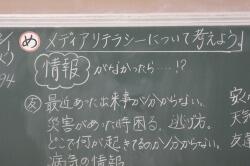 め メディアリテラシーについて考えよう
情報 がなかったら…!?
友 最近あった出来事が分からない。
災害があった時困る。逃げ方。
どこで何が起きてるか分からない。
病気の情報